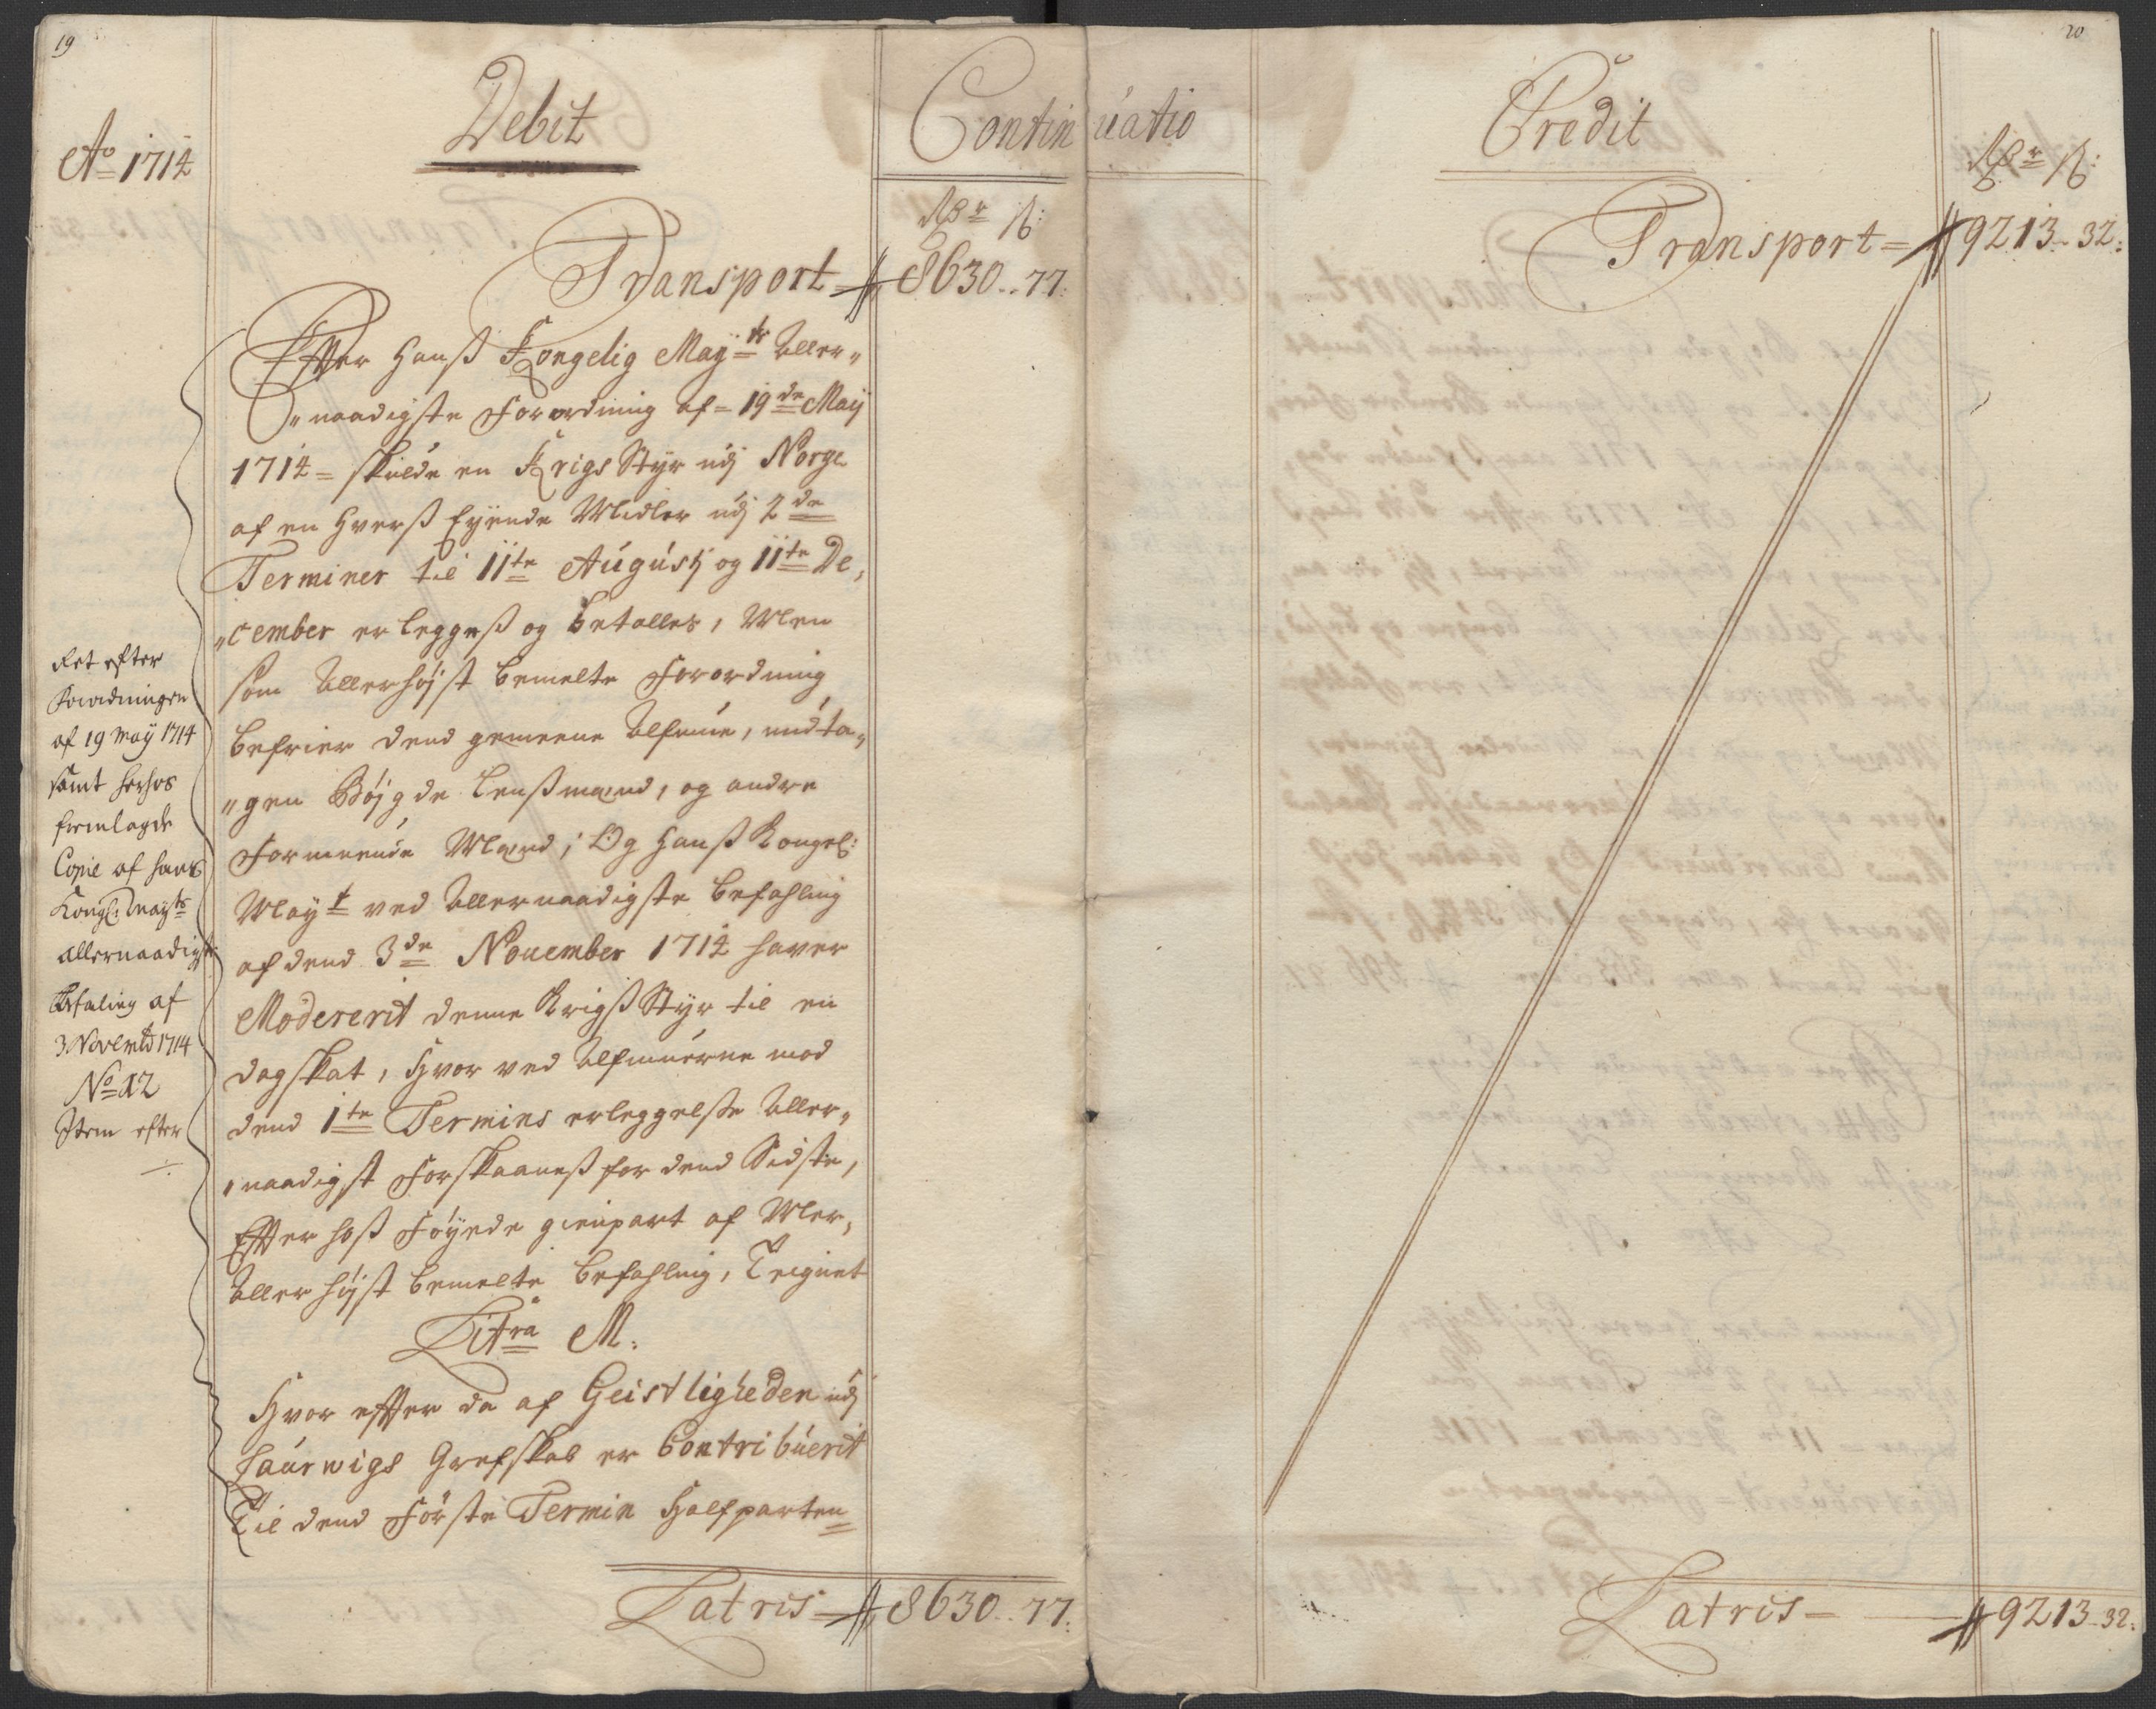 19
Ao 1714
Debit
Continuatio
Rdr ß:
Transport = 8630..77:
Effter Hanß Kongelig Mayts Aller„
„naadigste Forordning af = 19de Maij
1714 = skulde en Krigs Styr udj Norge
af en Hverß Eyende Midler udj 2de
Terminer til 11te Augustj og 11te De„
„cember erleggeß og betalles, Men
som Allerhøjst bemelte Forordning
befrier dend gemeene Allmue, undta„
„gen Bøjgde Lenßmænd, og andre
Formuende Mænd; Og Hanß Kongel:
Mayt ved Allernaadigste befahling
af dend 3de November 1714 hafver
Modererit denne Krigß Styr til en
dagskat, Hvor ved Allmuerne mod
dend 1te Termins erleggelse Aller„
„naadigst Forskaaneß for dend Sidste,
Effter hoß Føyede gienpart af Mer„
Allerhøjst bemelte befahling, Teignet
Litra M.
Hvor effter da af Geistligheden udj
Laurwigs Grefskab er Contribuerit
Til dend Første Termin Halfparten
Latris = 8630..77:
Ret efter
Forordningen
af 19 May 1714
samt herhos
fremlagde
Copie af hans
Kongl: Mayts
allernaadigste
Befaling af
3 Novembr 1714
No 12
Item efter
20
Credit
Rdr ß:
Transport = 9213..32:
Latris = 9213..32: